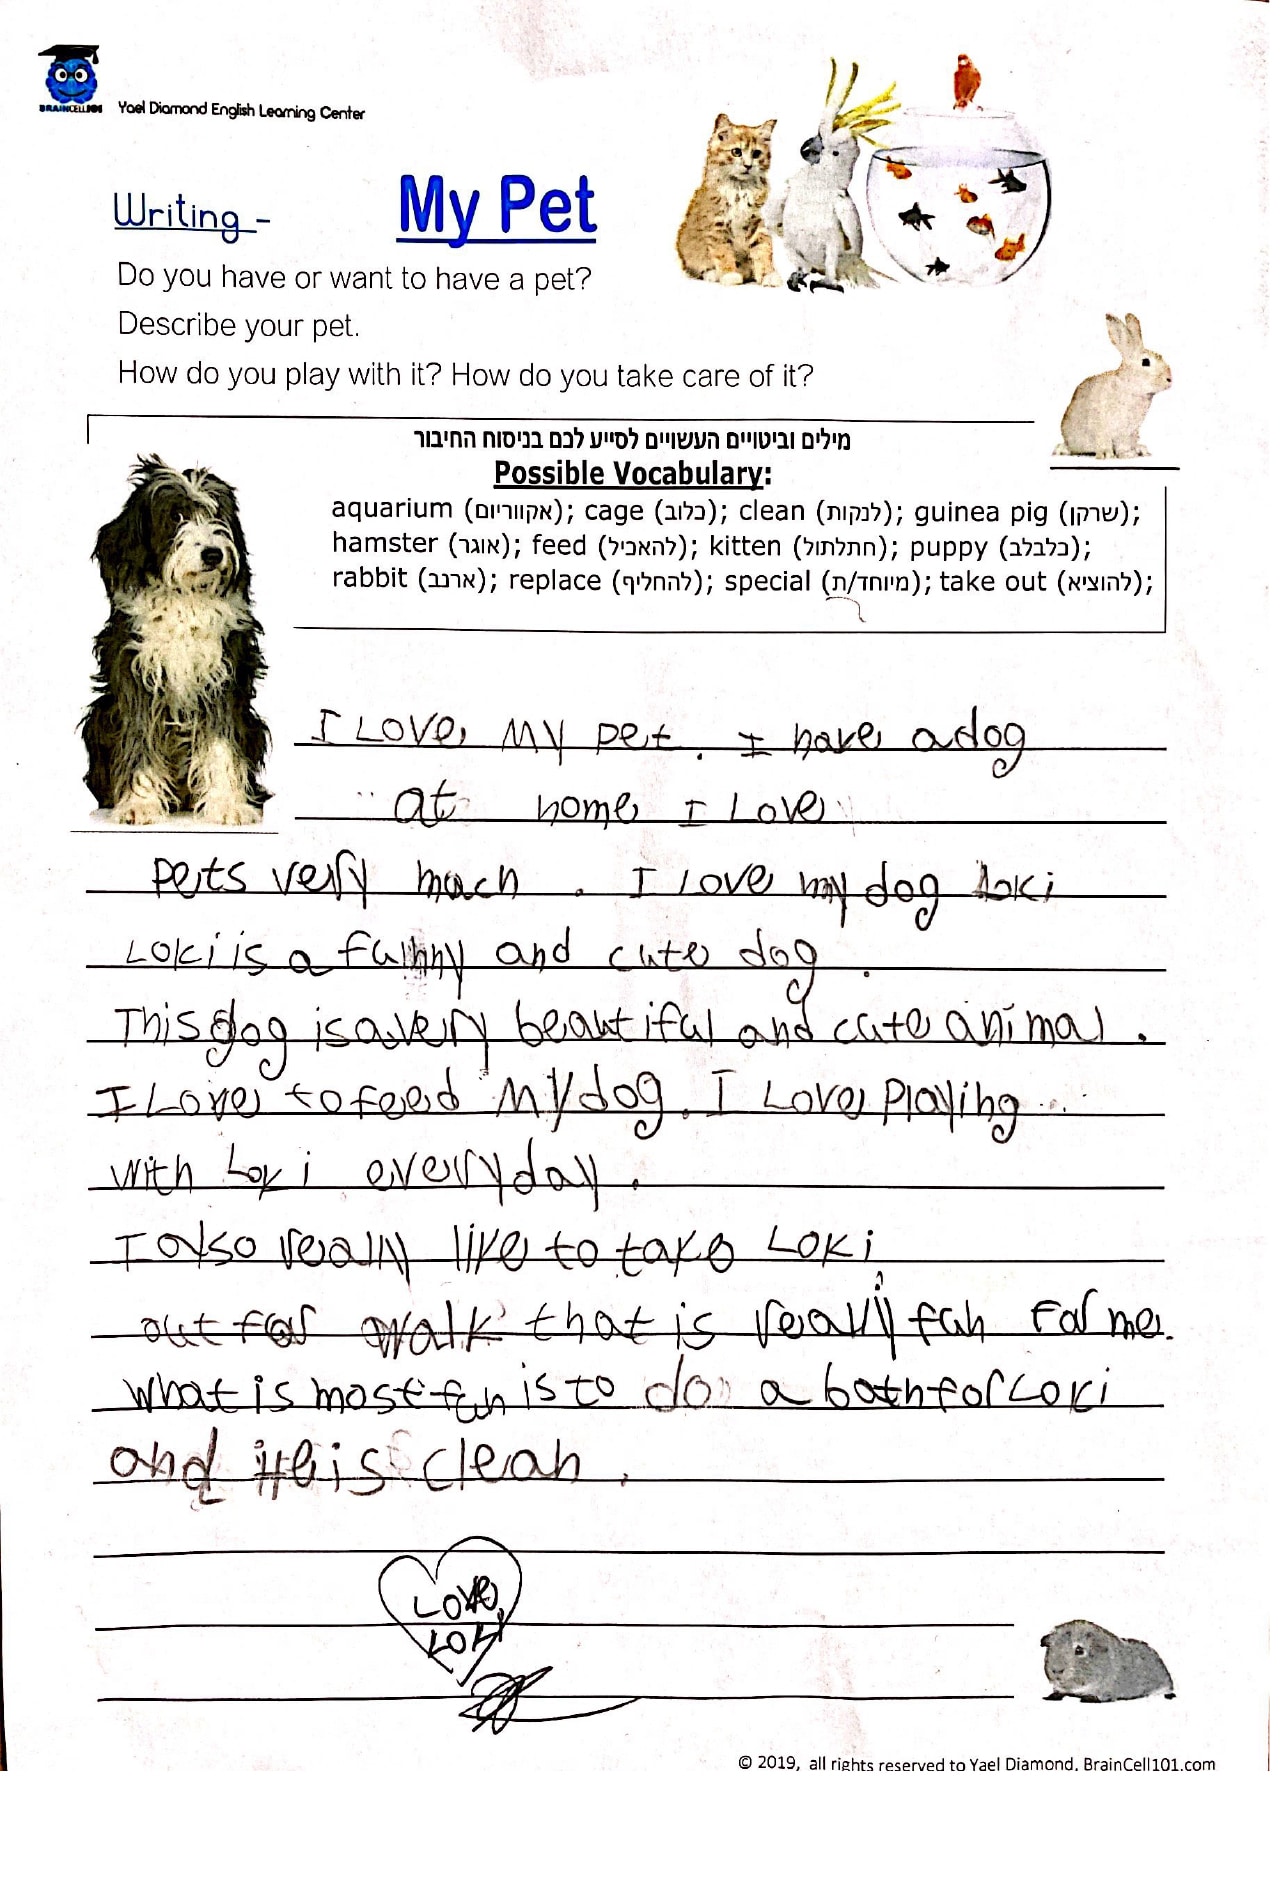 BRAINCELL101
Yael Diamond English Learning Center
Writing -
My Pet
Do you have or want to have a pet?
Describe your pet.
How do you play with it? How do you take care of it?
מילים וביטויים העשויים לסייע לכם בניסוח החיבור
Possible Vocabulary:
aquarium (אקווריום); cage (כלוב); clean (לנקות); guinea pig (שרקן);
hamster (אוגר); feed (להאכיל); kitten (חתלתול); puppy (כלבלב);
rabbit (ארנב); replace (להחליף); special (מיוחד/ת); take out (להוציא);
I Love My pet. I have a dog
at home I Love
Pets very mach. I Love my dog Loki
Loki is a funny and cute dog.
This dog is a very beautiful and cute animal.
I Love to feed My dog. I Love Playing
with Loki everyday.
I also really like to take Loki
out for walk that is really fun For me.
what is most fun is to do a bath for Loki
and is clean.
Love,
Loki
© 2019, all rights reserved to Yael Diamond. BrainCell101.com